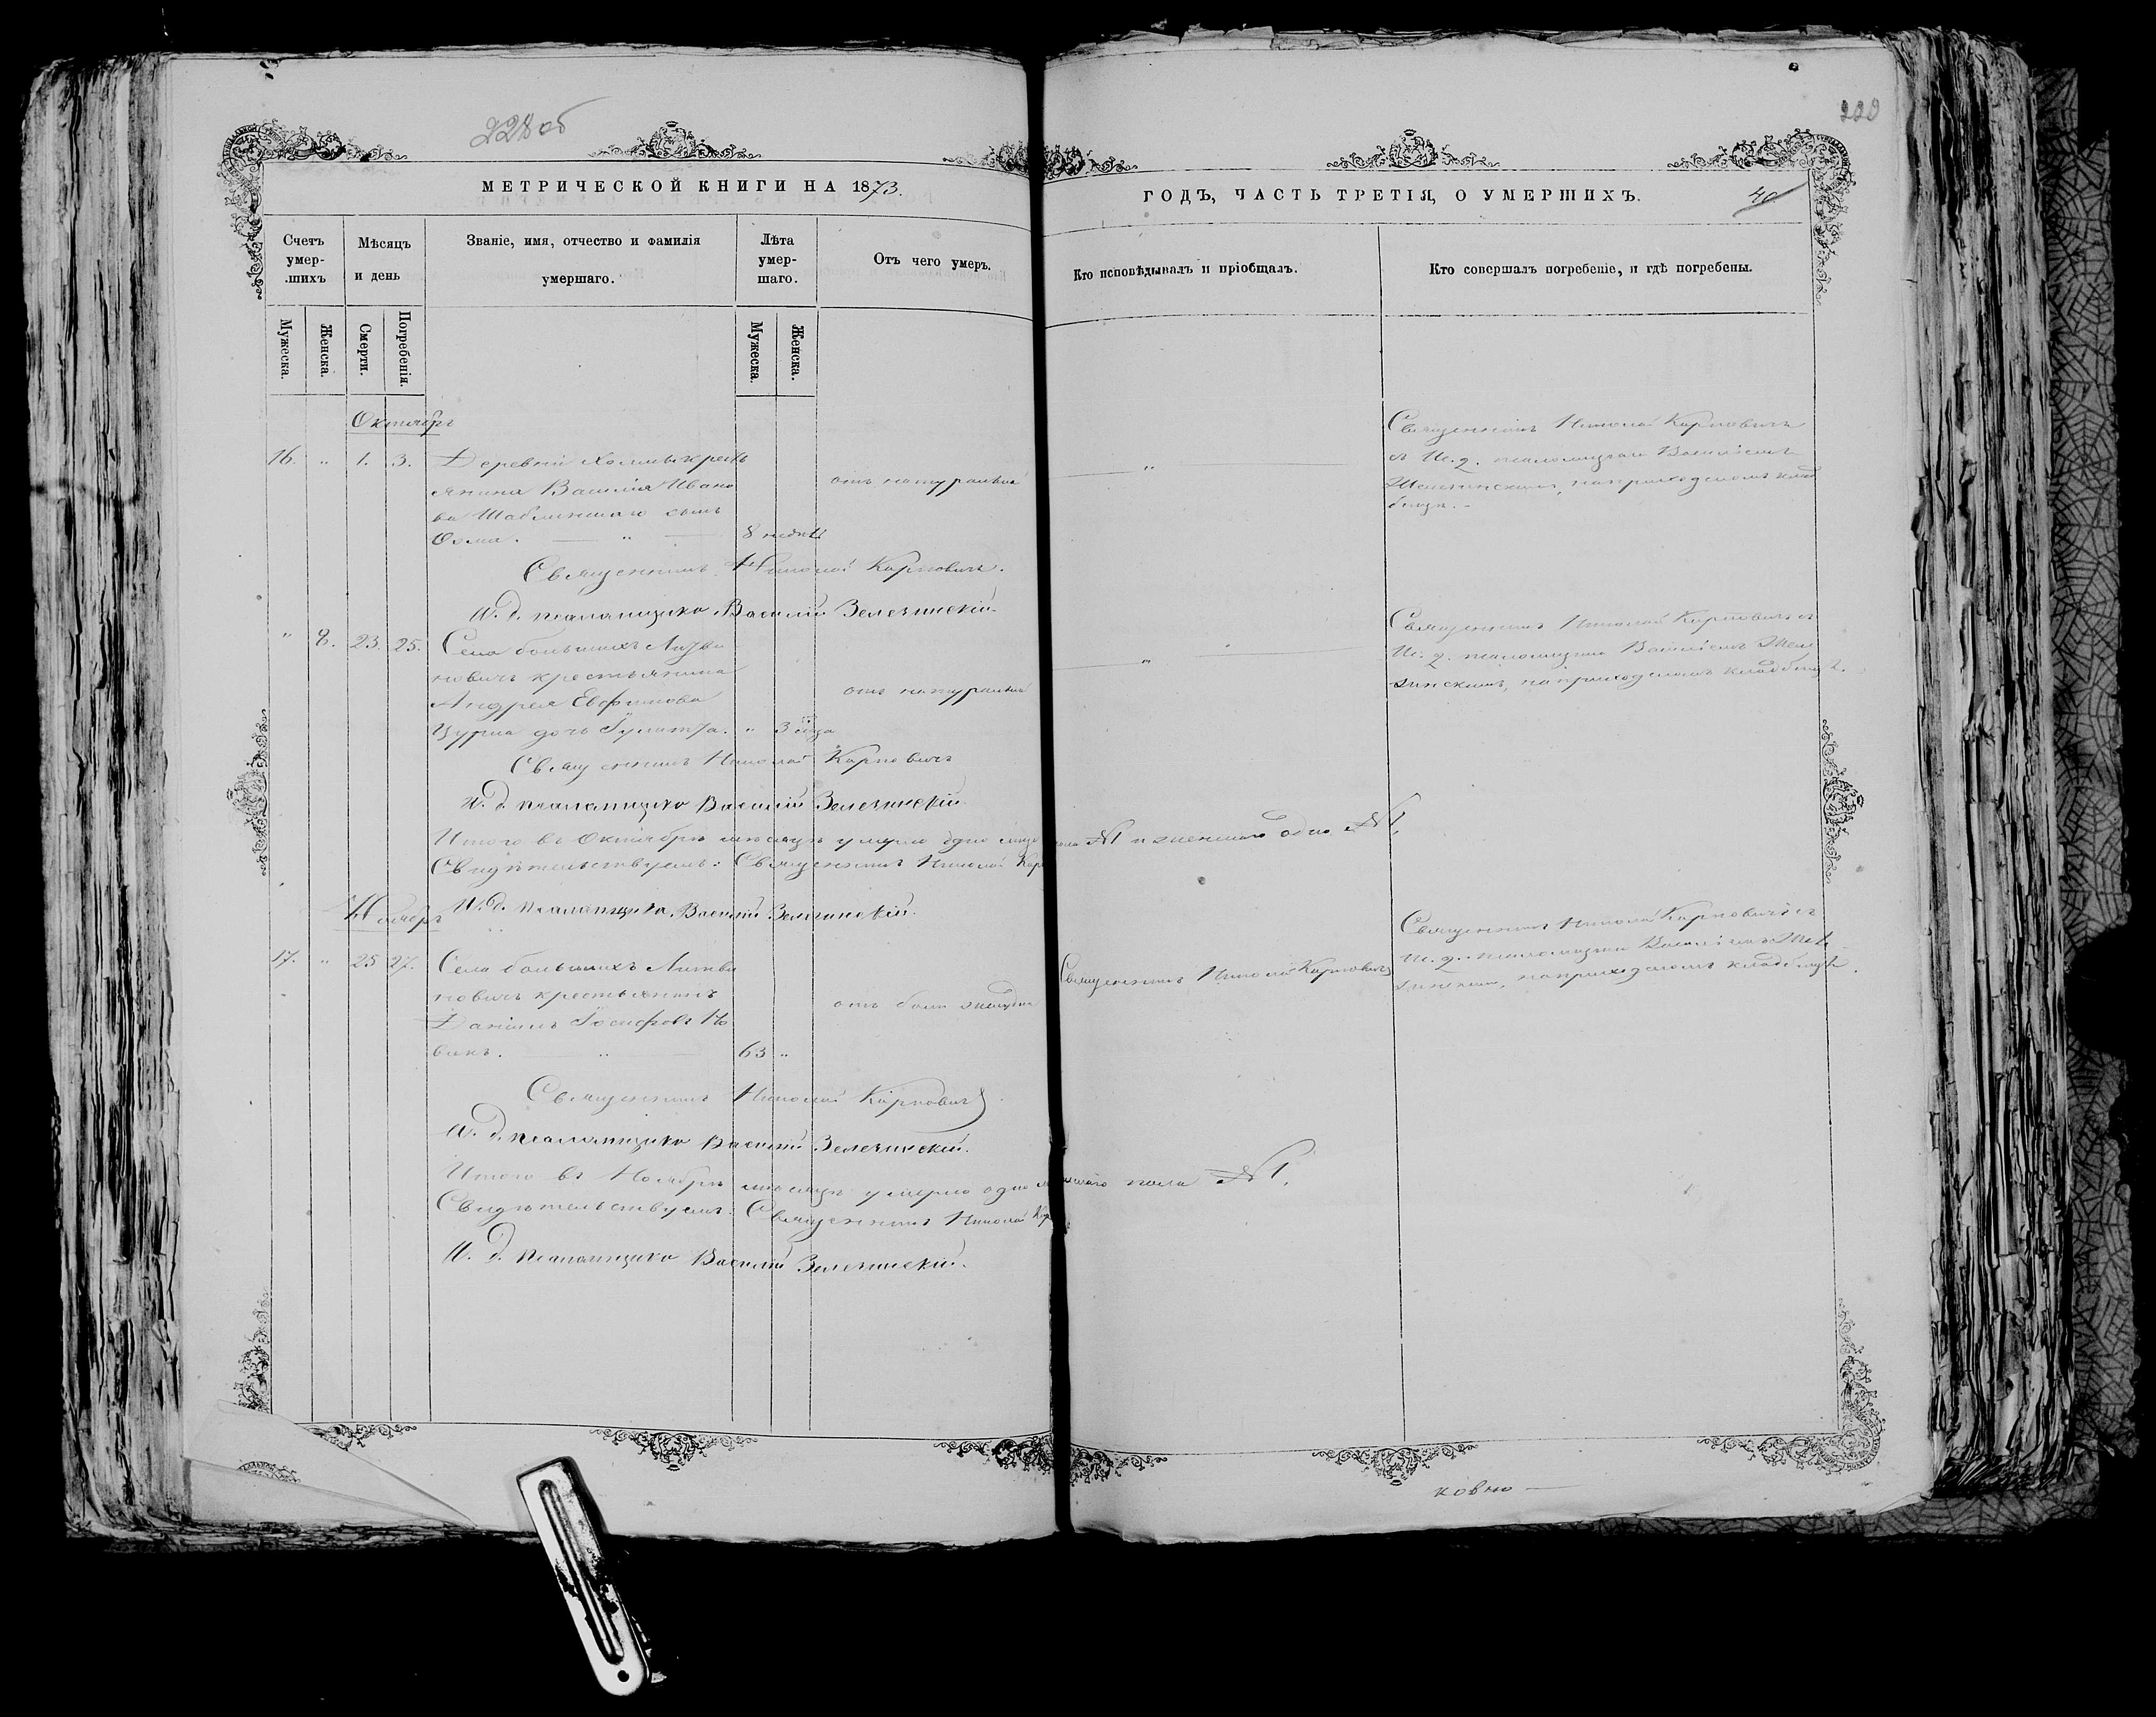 228 об
229
МЕТРИЧЕСКОЙ КНИГИ НА 1873.
ГОДЪ, ЧАСТЬ ТРЕТІЯ, О УМЕРШИХЪ.
40
Счетъ умер-.шихъ
Мѣсяцъ и день
Званіе, имя, отчество и фамилія умершаго.
Лѣта умер-шаго.
Отъ чего умеръ.
Кто исповѣдывалъ и пріобщалъ.
Кто совершалъ погребеніе, и гдѣ погребены.
Мужеска.
Женска.
Смерти.
Погребенія.
Мужеска.
Женска.
Октябрь
16. " 1. 3. Деревни крест
янина Василія Ивано
ва сынъ
Ѳома. — " — 8 недѣль
отъ натуральной
"
Священникъ Николай Карповичъ
съ И. д. псаломщика Василіемъ
на приходскомъ клад
бищѣ. -
Священникъ Николай Карповичъ.
И. д. псаломщика Василій Зелезинскій.
" 8. 23. 25. Села большихъ Литви
новичъ крестьянина
Андрея Евфимова
дочь Іулитта. " 3 года
отъ натуральной
"
Священникъ Николай Карповичъ съ
И. д. псаломщика Василіемъ Зеле
зинскимъ, на приходскомъ кладбищѣ.
Священникъ Николай Карповичъ
И. д. псаломщика Василій Зелезинскій
Итого въ Октябрѣ мѣсяцѣ умерло одно №1 и женскаго одно №1.
Свидѣтельствуемъ: Священникъ Николай Кар
И. д. псаломщика Василій Зелезинскій.
Ноябрь
17. " 25 27. Села большихъ Литви
новичъ крестьянинъ
Даніилъ Іосифовъ Но
вакъ. — " — 63 "
отъ боли
Священникъ Николай Карповичъ
Священникъ Николай Карповичъ съ
И. д. псаломщика Василіемъ Зеле
зинскимъ, на приходскомъ кладбищѣ.
Священникъ Николай Карповичъ
И. д. псаломщика Василій Зелезинскій.
Итого въ Ноябрѣ мѣсяцѣ умерло одно пола №1.
Свидѣтельствуемъ: Священникъ Николай Кар
И. д. псаломщика Василій Зелезинскій.